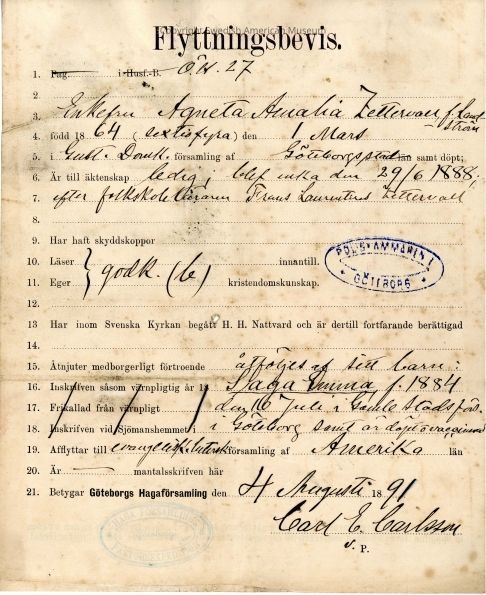 Copyright Swedish American Museum
Flyttningsbevis.
1. Pag. i Husf.-B. Öst. 27
2.
3. Enkefru Agneta Amalia Zettervall f. Sandström
4. född 1864 (sextiofyra) den 1 Mars
5. i Gust. Domk. församling af Göteborgs stad län samt döpt;
6. Är till äktenskap ledig; blef enka den 29/6 1888;
7. efter folkskoleläraren Frans Laurentius Zettervall
8.
9. Har haft skyddskoppor
10. Läser } godk. (b) innantill.
11. Eger kristendomskunskap.
POLISKAMMAREN I GÖTEBORG
12.
13 Har inom Svenska Kyrkan begått H. H. Nattvard och är dertill fortfarande berättigad
14.
15. Åtnjuter medborgerligt förtroende åtföljes af sitt barn:
16. Inskrifven såsom värnpligtig år 18 Saga Emma, f. 1884
17. Frikallad från värnpligt den 16 Juli i Gamle stads förs.
18. Inskrifven vid Sjömanshemmet i i Göteborg samt är döpt o vaccinerad
19. Afflyttar till evangelisk luthersk församling af Amerika län
20. Är mantalsskrifven här
21. Betygar Göteborgs Hagaförsamling den 4 Augusti 1891
Carl E. Carlsson
v. P.